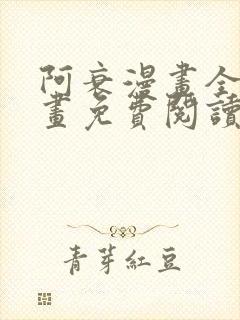 阿衰漫畫全
畫免費閱讀
青芽紅豆